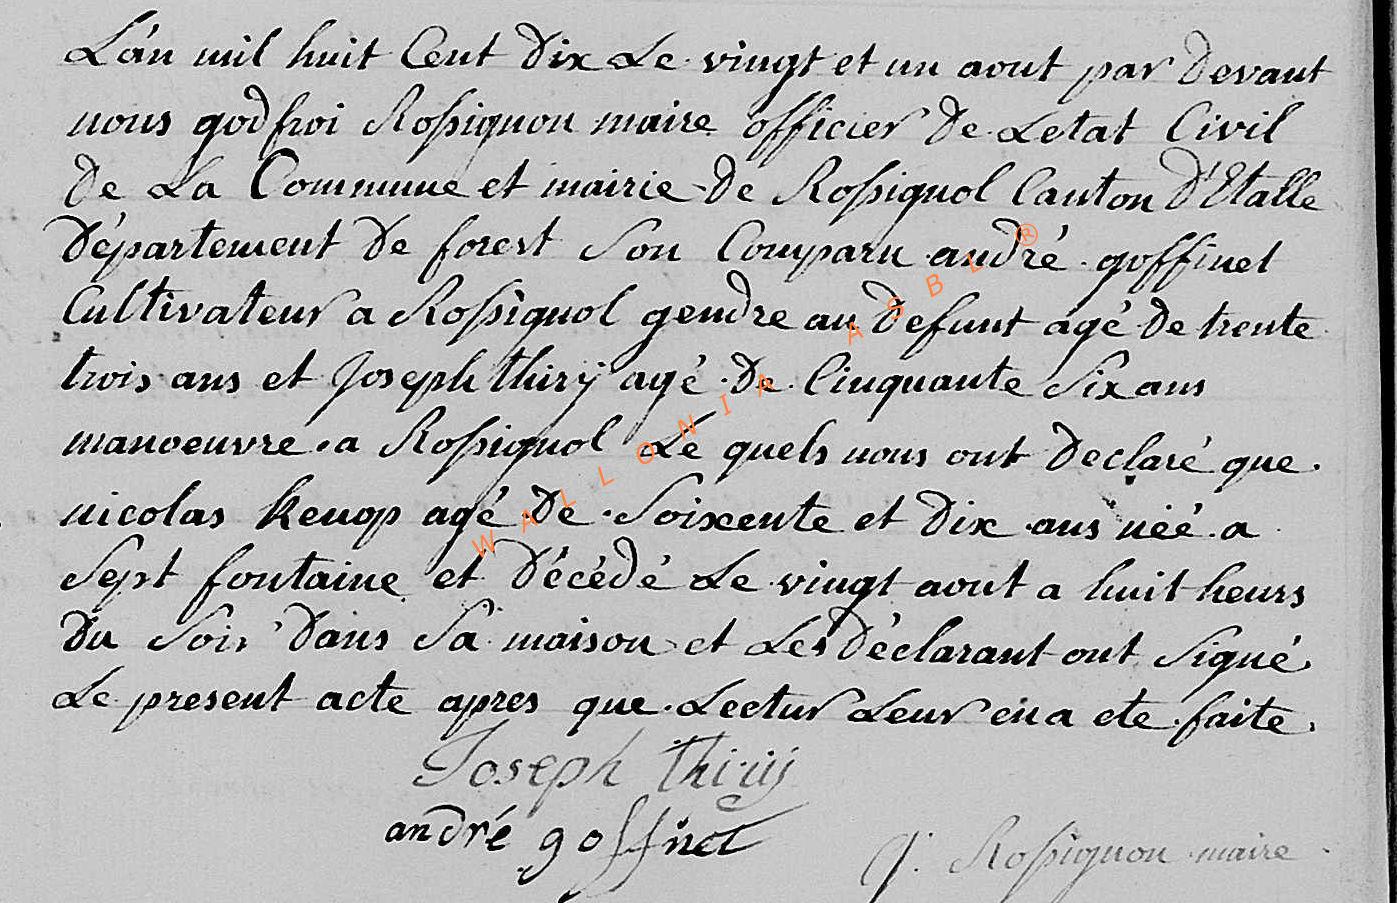 L'an mil huit Cent dix Le vingt et un aout par devant
nous godfroi Rossignon maire officier de Letat Civil
de La Commune et mairie de Rossignol Canton d'Etalle
département de forest Son Comparu andré goffinet
Cultivateur a Rossignol gendre au defunt agé de trente
trois ans et Joseph thirÿ agé de Cinquante Six ans
manoeuvre a Rossignol Le quels nous ont declaré que
nicolas Kenop agé de Soixente et dix ans néé a
Sept fontaine et décédé Le vingt aout a huit heurs
du Soir dans Sa maison et Les déclarant ont Signé
Le present acte apres que Lectur Leur en a ete faite.
Joseph thirÿ
andré goffinet
g. Rossignon maire
WALLONIA ASBL ®